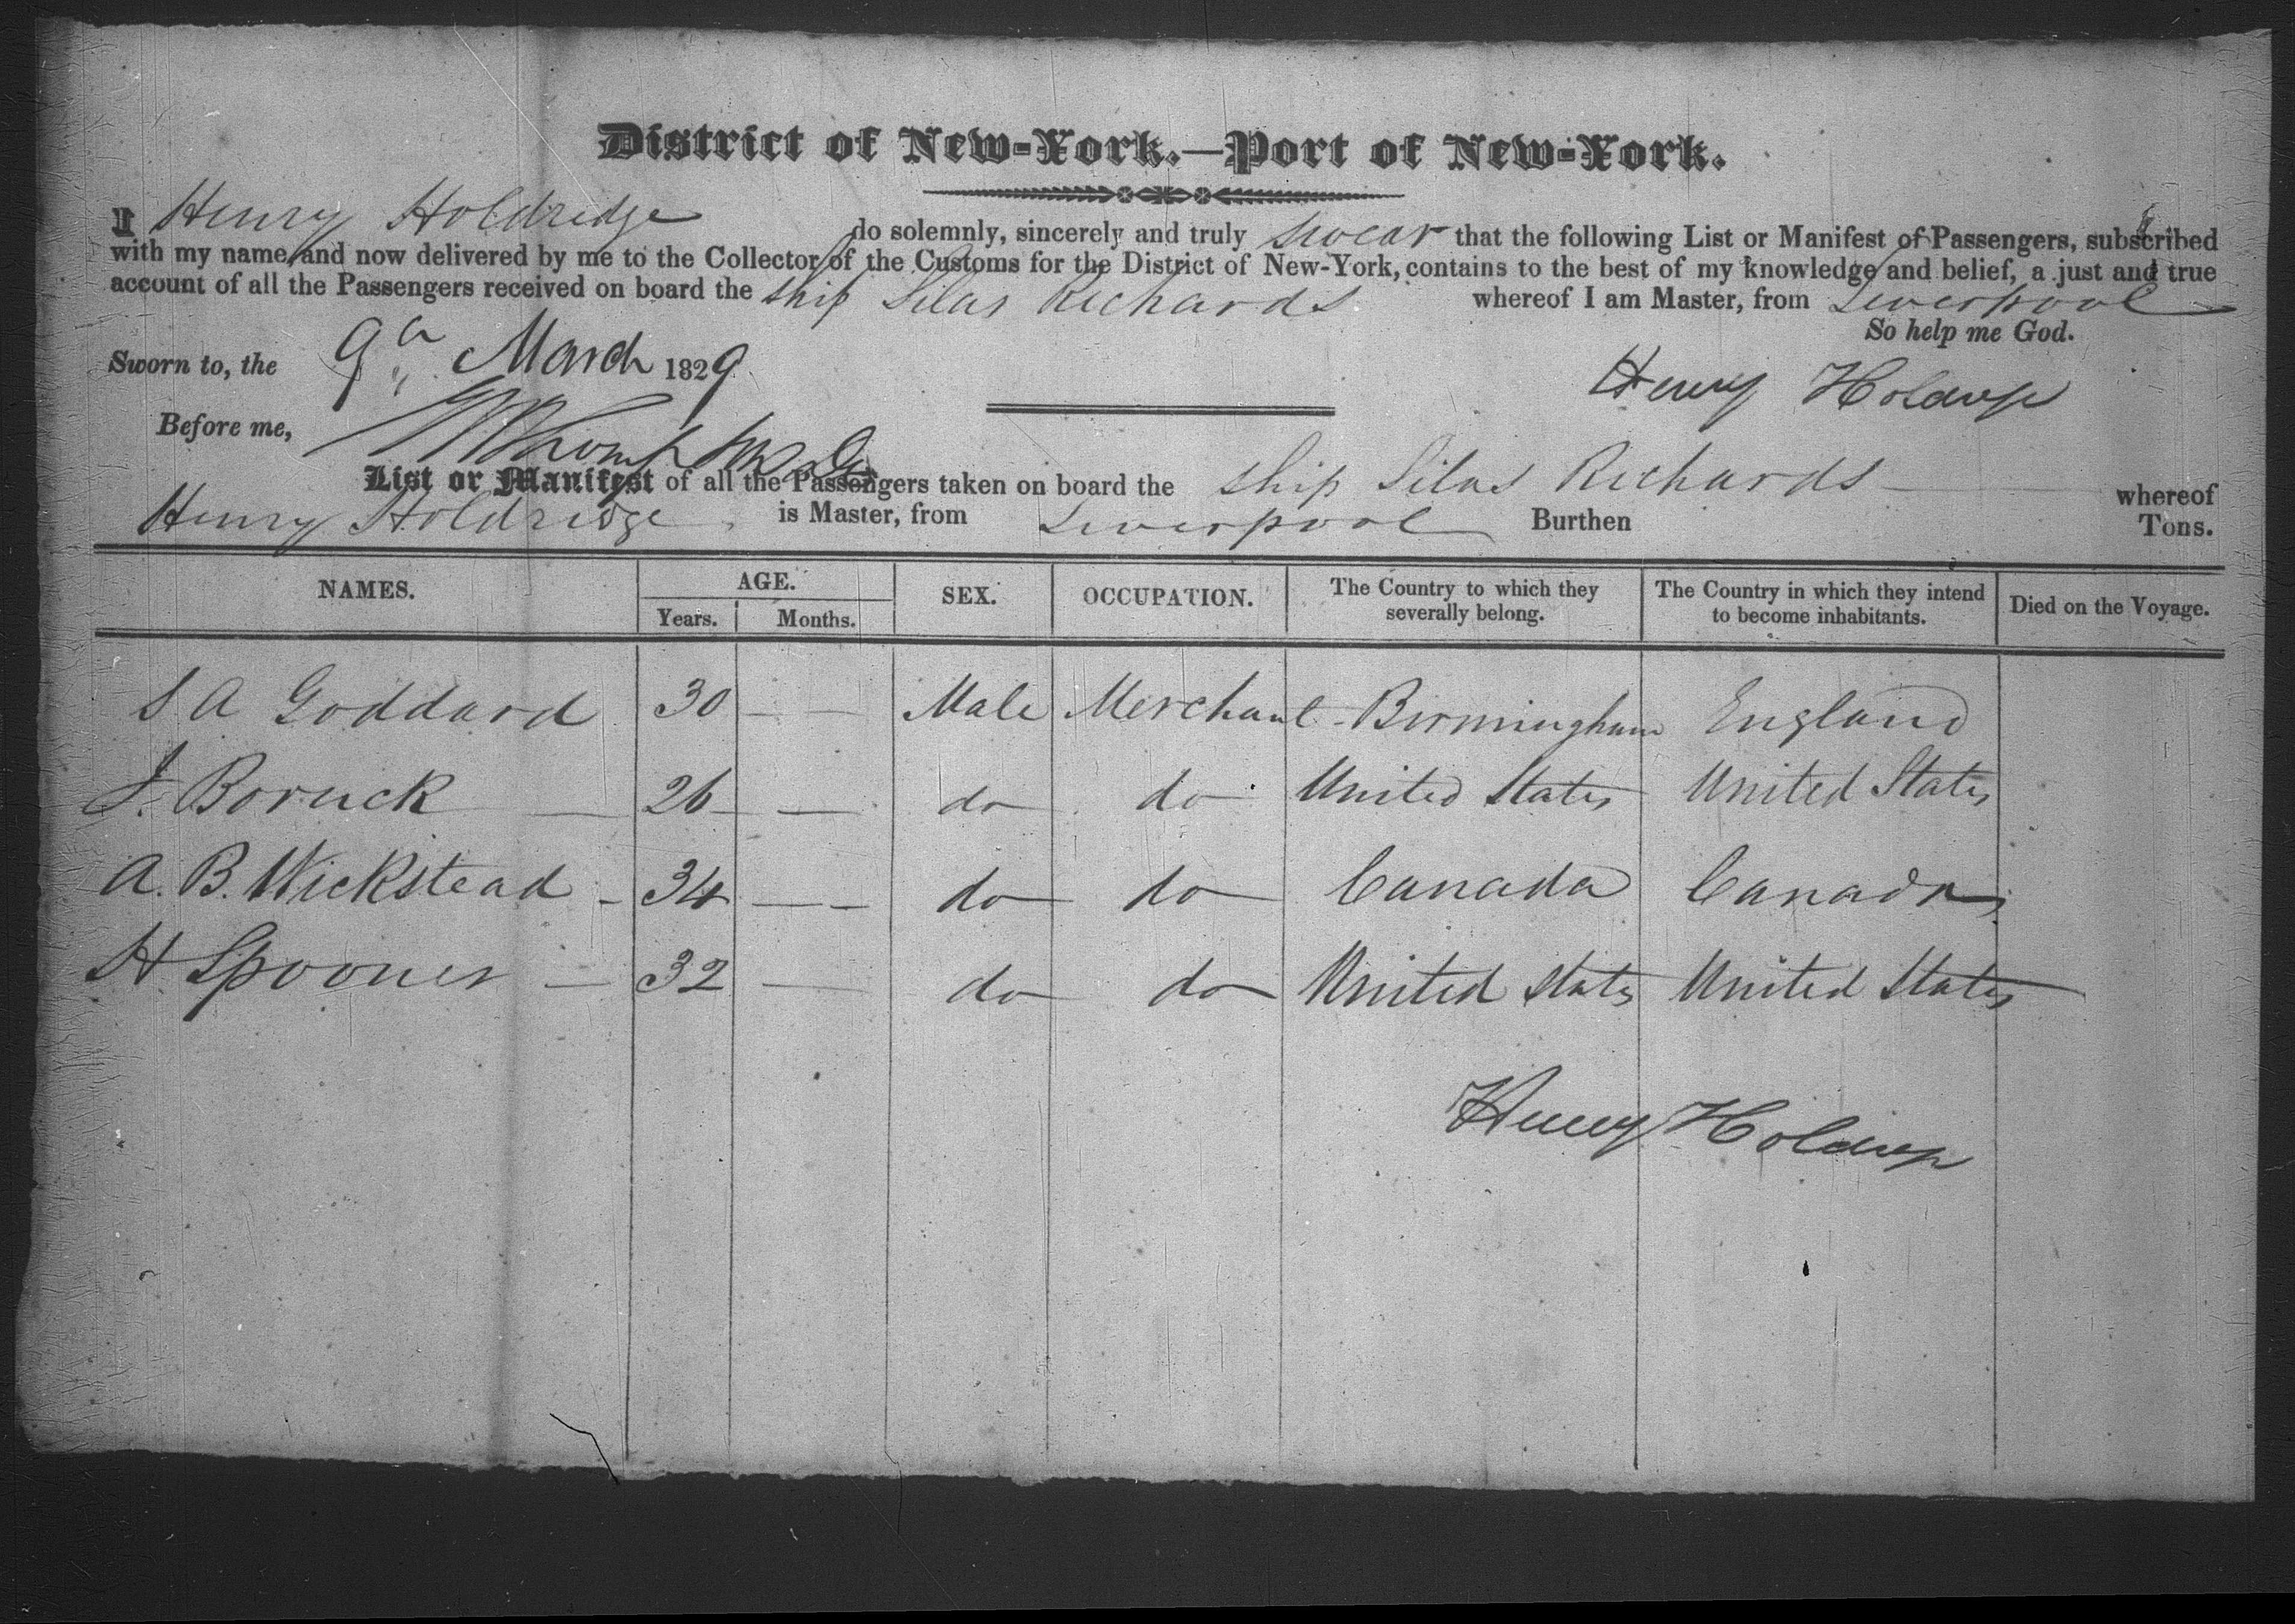 District of New-York.—Port of New-York.
I Henry Holdredge do solemnly, sincerely and truly swear that the following List or Manifest of Passengers, subscribed
with my name, and now delivered by me to the Collector of the Customs for the District of New-York, contains to the best of my knowledge and belief, a just and true
account of all the Passengers received on board the ship Silas Richards whereof I am Master, from Liverpool
So help me God.
Sworn to, the 9th March 1829
Henry Holdrege
Before me,
List or Manifest of all the Passengers taken on board the ship Silas Richards whereof
Henry Holdridge is Master, from Liverpool Burthen Tons.
NAMES. AGE. SEX. OCCUPATION. The Country to which they severally belong. The Country in which they intend to become inhabitants. Died on the Voyage.
Years. Months.
S A Goddard 30 — — Male Merchant - Birmingham England
J. Boruck — 26 — do do United States United States
A. B. Wickstead - 34 — — do do Canada Canada
H Spooner — 32 — do do United States United States
Henry Holdrege